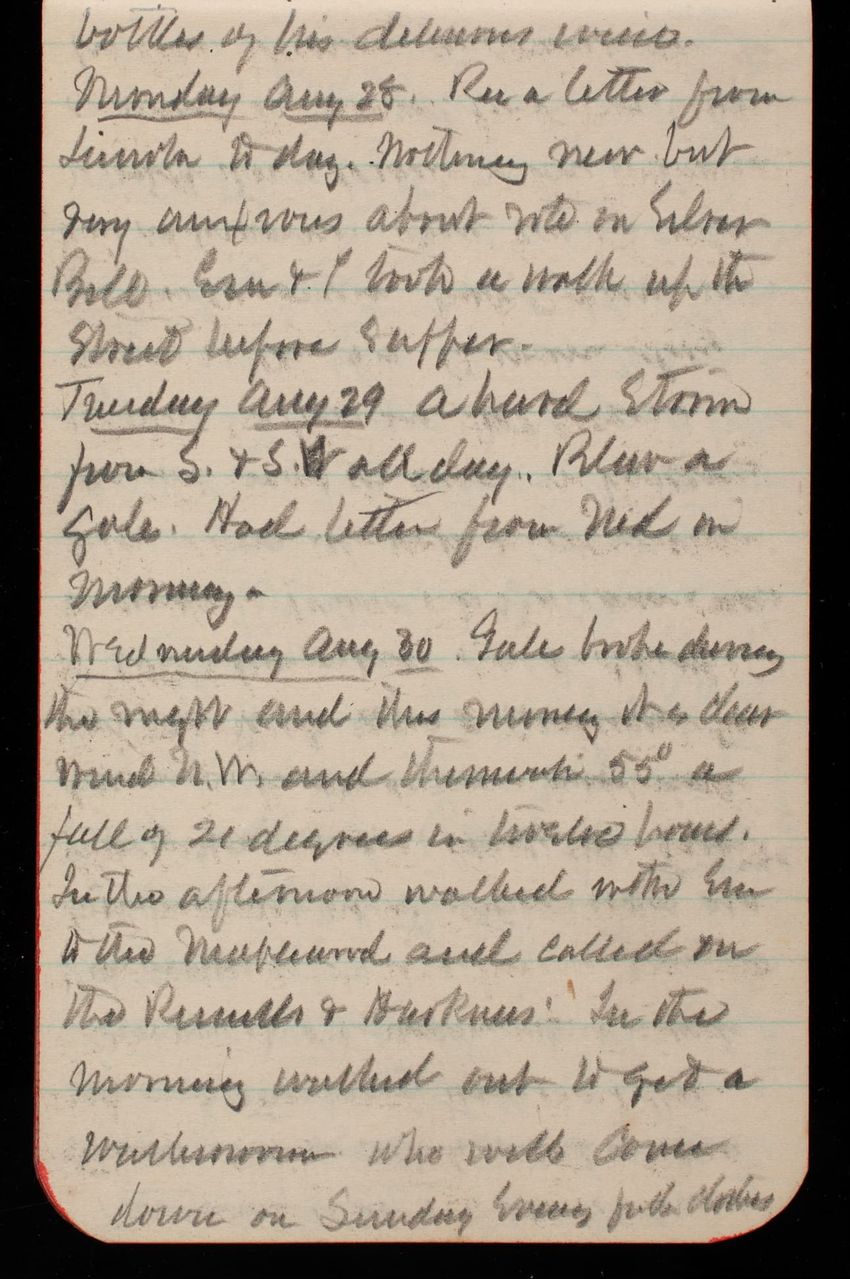 bottles of his delicious wine.
Monday Aug 28. Rec a letter from
Lincoln to day. Nothing new but
very anxious about vote on Silver
Bill. Em & I took a walk up the
Street before Supper.
Tuesday Aug 29 a hard Storm
from S. & S.W all day. Blew a
gale. Had letter from Ned in
morning.
Wednesday Aug 30. Gale broke during
the night and this morning it is clear
wind N.W. and thermom 55° a
fall of 21 degrees in twelve hours.
In the afternoon walked with Em
to the Maplewood and called on
the Russells & Harkness' In the
morning walked out to get a
washwoman who will come
down on Sunday Evening for the clothes